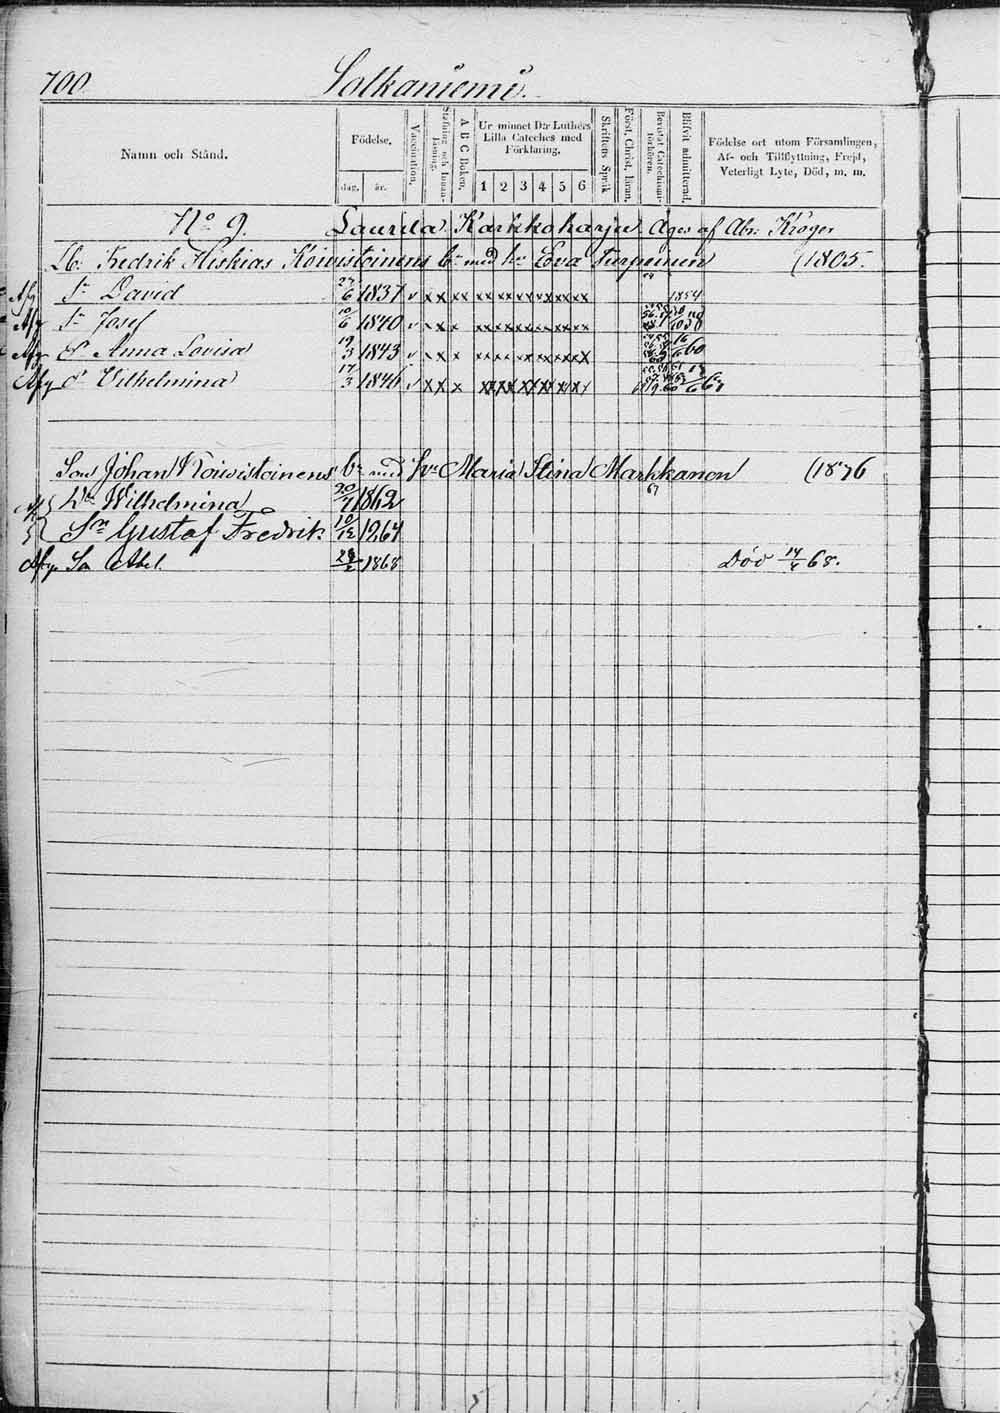 700 Solkaniemi.
Namn och Stånd. Födelse. Vaccination. Stafning och Innanläsning. A B C Boken. Ur minnet D:r Luthers Lilla Cateches med Förklaring. Skriftens Språk. Först. Christ. läran. Bevistat Catechismiförhören. Blifvit admitterad. Födelse ort utom Församlingen, Af- och Tillflyttning, Frejd, Veterligt Lyte, Död, m. m.
dag. år. 1 2 3 4 5 6
No 9. Laurila Karkkoharju Äges af Abr: Kröger
Lb: Fredrik Hiskias Koivistoinens b:r med h:u Eva Turpeinen (1805.
Afg S:n David 27/6 1837 v x x x x x x x x x x x x x x x 1854
Afg S:n Josef 10/6 1840 v x x x x x x x x x x x x x x
Afg d:r Anna Lovisa 19/3 1843 v x x x x x x x x x x x x x x 60
Afg d:r Vilhelmina 17/3 1846 v x x x x x x x x x x x x x x
Son Johan Koivistoinens b:r med h:u Maria Stina Markkanen (1876
67
D:r Wilhelmina 20/7 1862
S:n Gustaf Fredrik 10/12 1864
Afg So Abel. 1868 Död 14/4 68.